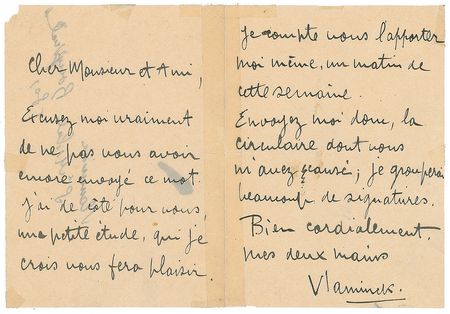 Cher Monsieur et Ami,
Excusez moi vraiment
de ne pas vous avoir
encore envoyé ce mot.
J'ai de côté pour vous,
une petite étude, qui je
crois vous fera plaisir.
Je compte vous l'apporter
moi même, un matin de
cette semaine.
Envoyez moi donc, la
circulaire dont vous
m'avez causé; je grouperai
beaucoup de signatures.
Bien cordialement,
mes deux mains
Vlaminck.